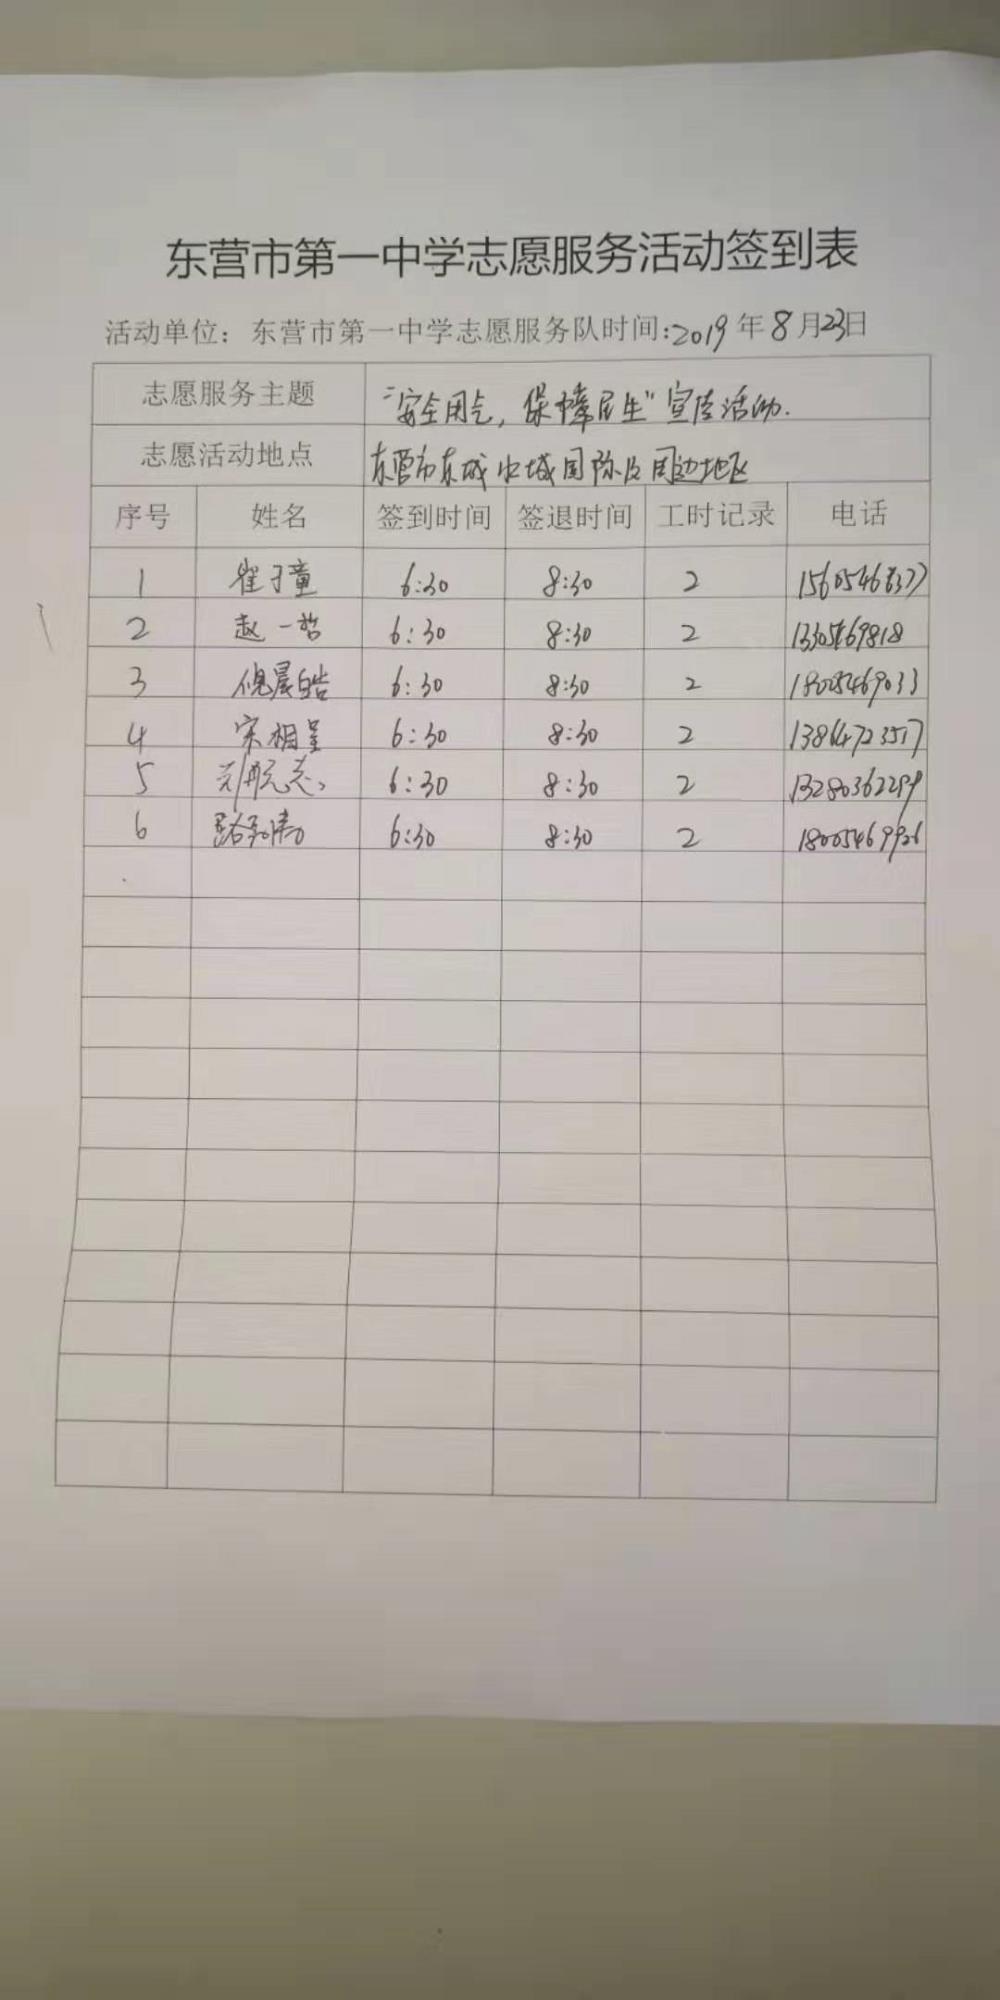 东营市第一中学志愿服务活动签到表
活动单位：东营市第一中学志愿服务队时间:2019年8月23日
志愿服务主题 “安全用气，保障民生”宣传活动.
志愿活动地点 东营市东城水城国际及周边地区
序号 姓名 签到时间 签退时间 工时记录 电话
1 崔子童 6:30 8:30 2
2 赵一哲 6:30 8:30 2
3 倪晨皓 6:30 8:30 2 18025469033
4 宋相呈 6:30 8:30 2 13864723517
5 6:30 8:30 2
6 6:30 8:30 2 18005469926